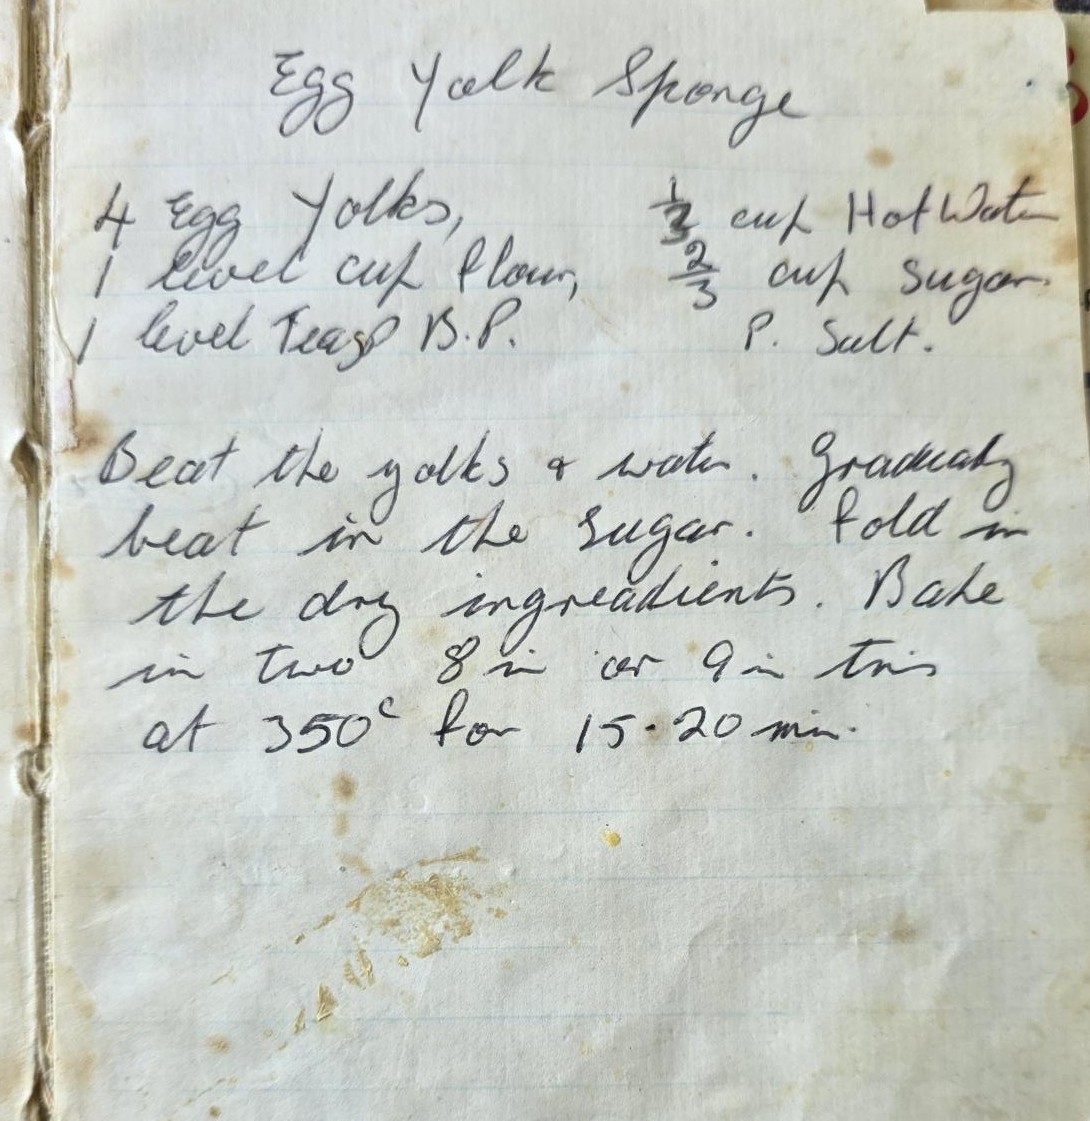 Egg Yolk Sponge
4 Egg Yolks, 1/3 cup Hot Water
1 level cup flour, 2/3 cup Sugar.
1 level Teasp B.P. P. Salt.
Beat the yolks & water. Gradually
beat in the sugar. Fold in
the dry ingreadients. Bake
in two 8 in or 9 in tins
at 350c for 15-20 min.